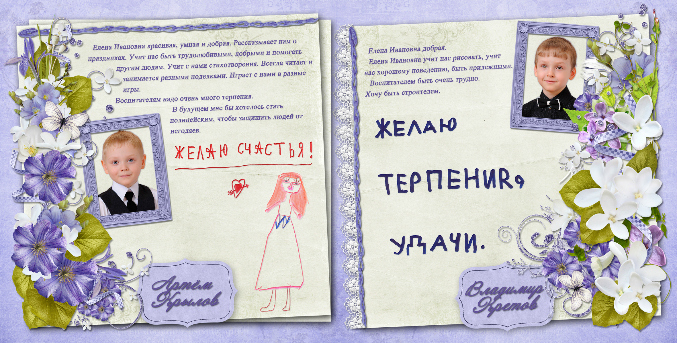 Елена Ивановна красивая, умная и добрая. Рассказывает нам о
праздниках. Учит нас быть трудолюбивыми, добрыми и помогать
другим людям. Учит с нами стихотворения. Всегда читает и
занимается разными поделками. Играет с нами в разные
игры.
Воспитателям надо очень много терпения.
В будущем мне бы хотелось стать
полицейским, чтобы защищать людей от
негодяев.
ЖЕЛАЮ СЧАСТЬЯ!
Артём
Крылов
Елена Ивановна добрая.
Елена Ивановна учит нас рисовать, учит
нас хорошему поведению, быть прилежными.
Воспитателем быть очень трудно.
Хочу быть строителем.
ЖЕЛАЮ
ТЕРПЕНИЯ,
УДАЧИ.
Владимир